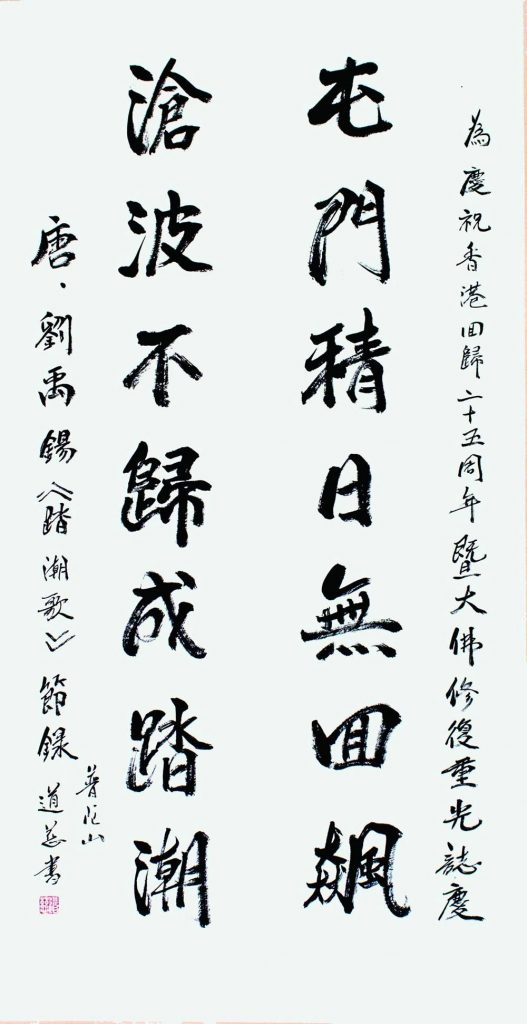 為慶祝香港回歸二十五周年暨大佛修復重光誌慶
屯門積日無回飆
滄波不歸成踏潮
唐、劉禹錫《踏潮歌》節錄
普陀山
道慈書